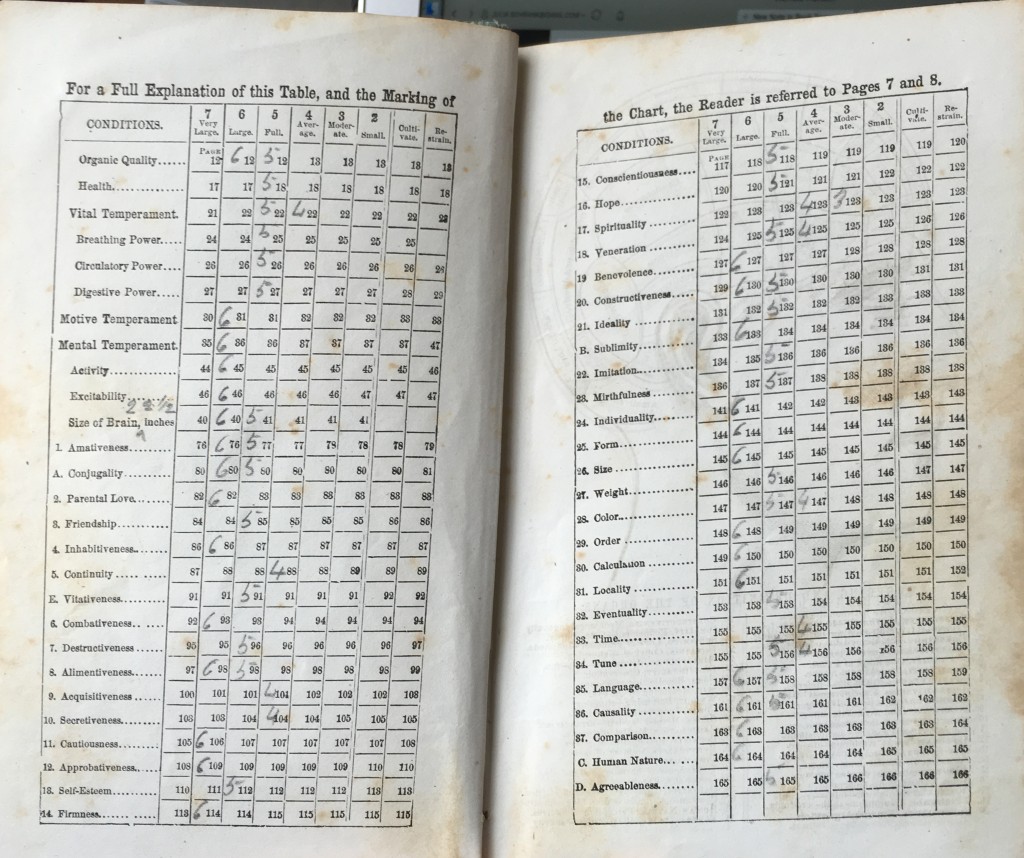 For a Full Explanation of this Table, and the Marking of
CONDITIONS. 7 Very Large. 6 Large. 5 Full. 4 Average. 3 Moderate. 2 Small. Culti-vate. Re-strain.
Organic Quality...... PAGE 12 6 12 5 12 13 13 13 13 13
Health................ 17 17 5 18 18 18 18 18 18
Vital Temperament. 21 22 5 22 4 22 22 22 22 23
Breathing Power..... 24 24 5 25 25 25 25 25
Circulatory Power.... 26 26 5 26 26 26 26 26 26
Digestive Power..... 27 27 5 27 27 27 27 28 29
Motive Temperament 30 6 31 31 32 32 32 33 33
Mental Temperament. 35 6 36 36 37 37 37 37 47
Activity.............. 44 6 45 45 45 45 45 45 46
Excitability........... 46 6 46 46 46 46 47 47 47
22 1/2
Size of Brain, inches 40 6 40 5 41 41 41 41
1. Amativeness....... 76 6 76 5 77 77 78 78 78 79
A. Conjugality........ 80 6 80 5 80 80 80 80 80 81
2. Parental Love...... 82 6 82 83 83 83 83 83 83
3. Friendship.......... 84 84 5 85 85 85 85 86 86
4. Inhabitiveness...... 86 6 86 87 87 87 87 87 87
5. Continuity ......... 87 88 88 4 88 88 89 89 89
E. Vitativeness........ 91 91 5 91 91 91 91 92 92
6. Combativeness.. .. 92 6 93 93 94 94 94 94 94
7. Destructiveness..... 95 95 5 96 96 96 96 96 97
8. Alimentiveness..... 97 6 98 5 98 98 98 98 98 99
9. Acquisitiveness..... 100 101 101 4 101 102 102 102 103
10. Secretiveness....... 103 103 104 4 104 104 105 105 105
11. Cautiousness........ 105 6 106 107 107 107 107 107 108
12. Approbativeness.... 108 6 109 109 109 109 110 110
13. Self-Esteem........ 110 111 5 112 112 112 113 113
14. Firmness........... 113 6 114 114 115 115 115 115
the Chart, the Reader is referred to Pages 7 and 8.
CONDITIONS. 7 Very Large. 6 Large. 5 Full. 4 Aver-age. 3 Moder-ate. 2 Small. Culti-vate. Re-strain.
15. Conscientiousness.... PAGE 117 118 5 118 119 119 119 119 120
16. Hope................ 120 120 5 121 121 121 122 122 122
17. Spirituality .......... 122 123 123 4 123 3 123 123 123 123
18. Veneration .......... 124 125 5 125 4 125 125 125 126 126
19 Benevolence......... 127 6 127 127 127 128 128 128 128
20. Constructiveness..... 129 6 130 5 130 130 130 130 131 131
21. Ideality ............. 131 132 5 132 132 132 133 133 133
B. Sublimity........... 133 6 133 134 134 134 134 134 134
22. Imitation............ 134 135 5 136 136 136 136 136 136
23. Mirthfulness ........ 136 137 5 137 138 138 138 138 138
24. Individuality......... 141 6 141 142 142 143 143 143 143
25. Form ............... 144 6 144 144 144 144 144 144 144
26. Size ................ 145 6 145 145 145 145 145 145 145
27. Weight.............. 146 146 5 146 146 146 146 147 147
28. Color................ 147 147 5 147 4 147 148 148 148 148
29. Order .............. 148 6 148 149 149 149 149 149 149
30. Calculation ......... 149 6 150 150 150 150 150 150 150
31. Locality ............ 151 6 151 151 151 151 151 151 152
32. Eventuality ......... 153 153 5 153 154 154 154 154 154
33. Time................ 155 155 155 4 155 155 155 155 155
34. Tune ............... 155 155 5 156 4 156 156 156 156 156
35. Language........... 157 6 157 5 158 158 158 158 158 159
36. Causality ........... 161 6 161 5 161 161 161 162 162 162
37. Comparison......... 163 6 163 163 163 163 163 163 164
C. Human Nature...... 164 6 164 164 164 164 165 165 165
D. Agreeableness....... 165 165 5 165 165 166 166 166 166